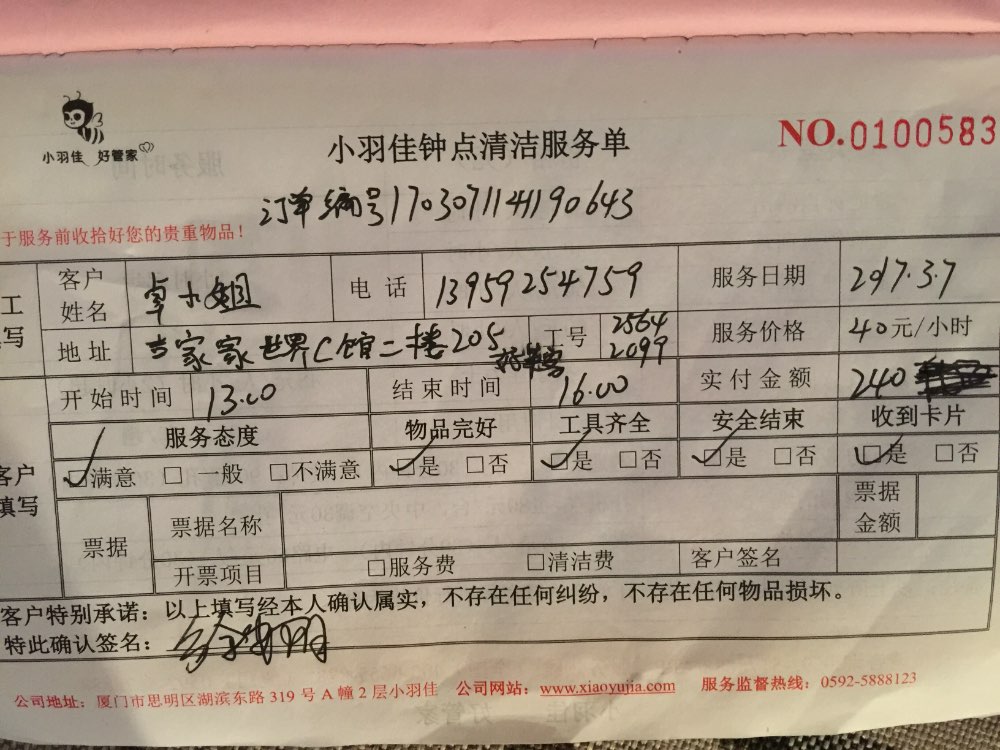 小羽佳 好管家
小羽佳钟点清洁服务单
NO.0100583
订单编号170307114190643
于服务前收拾好您的贵重物品！
工 客户姓名 卓小姐 电话 13959254759 服务日期 2017.3.7
写 地址 当家家世界C馆二楼205 工号 2564 2099 服务价格 40元/小时
开始时间 13.00 结束时间 16.00 实付金额 240
服务态度 物品完好 工具齐全 安全结束 收到卡片
客户填写 □满意 □一般 □不满意 □是 □否 □是 □否 □是 □否 □是 □否
票据 票据名称 票据金额
开票项目 □服务费 □清洁费 客户签名
客户特别承诺：以上填写经本人确认属实，不存在任何纠纷，不存在任何物品损坏。
特此确认签名：
公司地址：厦门市思明区湖滨东路 319 号 A 幢 2 层小羽佳 公司网站：www.xiaoyujia.com 服务监督热线：0592-5888123